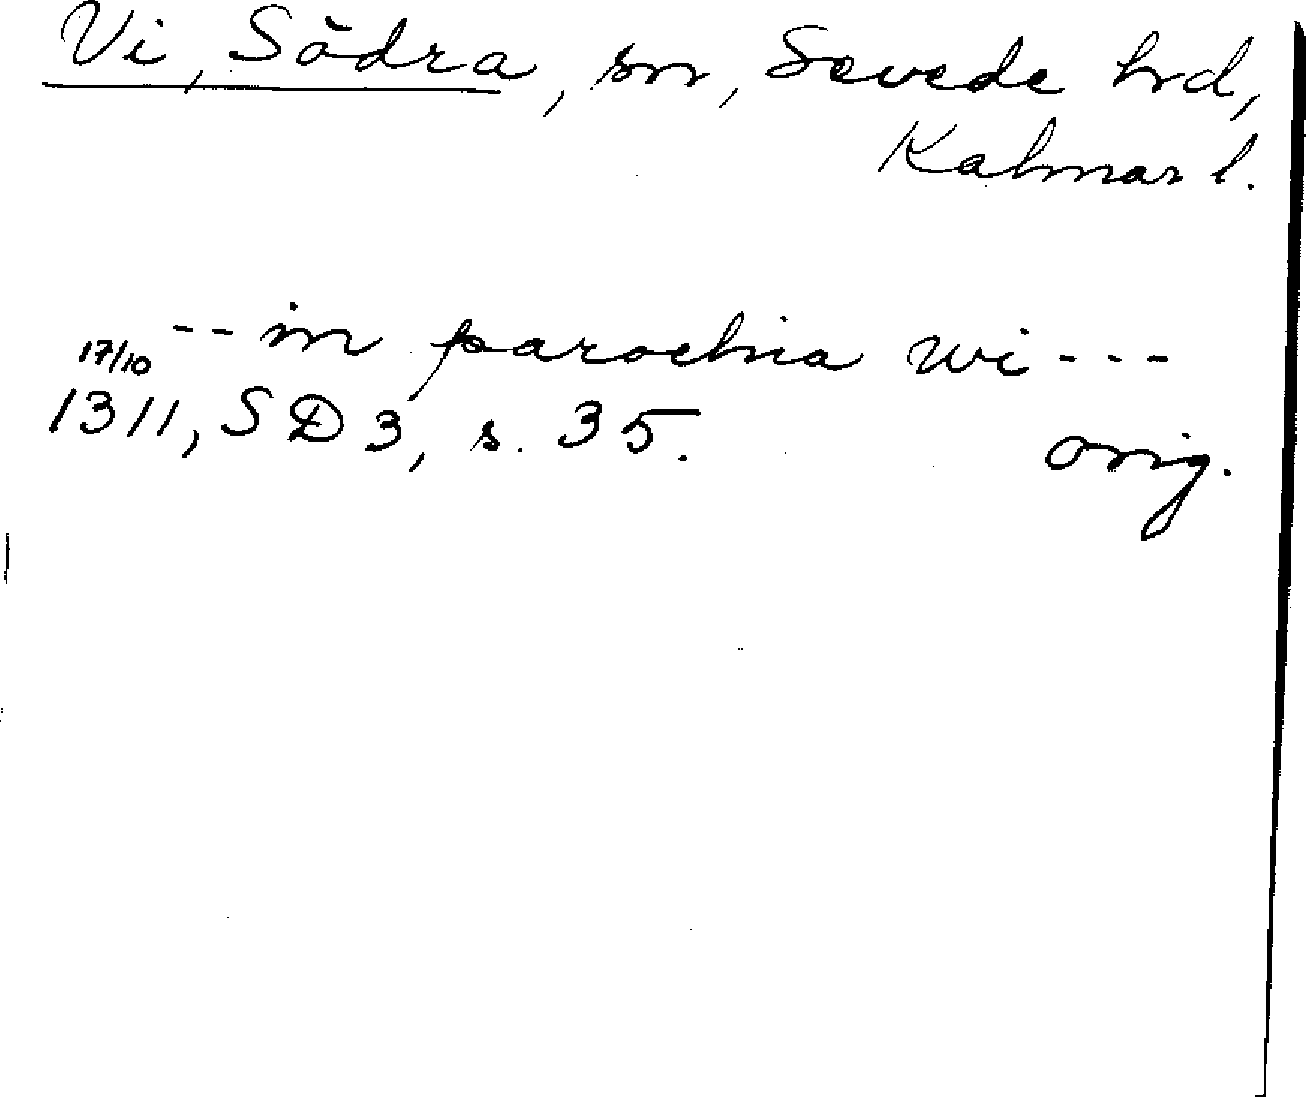 Vi, Södra, sn, Sevede hd,
Kalmar l.
-- in parochia wi ---
17/10
1311, SD 3, s. 35.
orig.